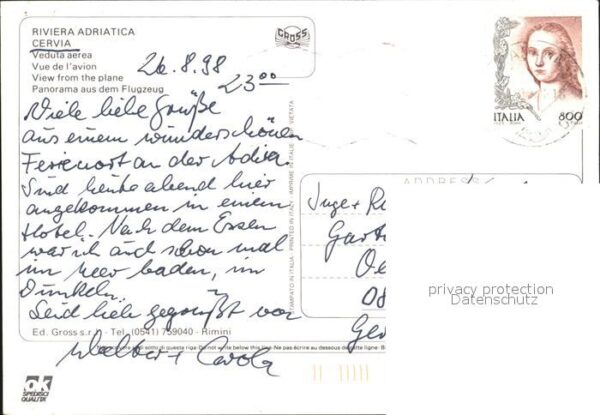 RIVIERA ADRIATICA
CERVIA
Veduta aerea
Vue de l'avion
View from the plane
Panorama aus dem Flugzeug
GROSS
26.8.98
23.00
ITALIA 800
Viele liebe Grüße
aus einem wunderschönen
Ferienort an der Adria.
Sind heute abend hier
angekommen in einem
Hotel. Nach dem Essen
war ich auch schon mal
im Meer baden, im
Dunkeln.
Seid lieb gegrüßt von
Walter + Carola
ADDRESS
Inge +
Gart
Oe
08
Ge
privacy protection
Datenschutz
Ed. Gross s.r.l. - Tel. (0541) 759040 - Rimini
Do not write below this line - Ne pas écrire au dessous de cette ligne
PRINTED IN ITALY - IMPRIMÉ EN ITALIE
VIETATA
STAMPATO IN ITALIA
ok
SPEDISCI
QUALITÀ